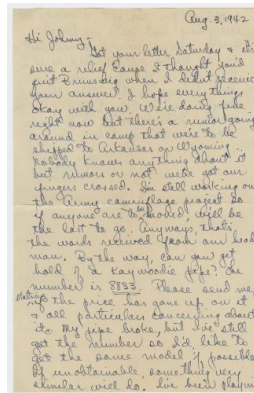 Aug. 3, 1942
Hi Johnny -
Got your letter Saturday & it's
sure a relief cause I thought you'd
quit Brunswig when I didn't receive
your answer. I hope everything's
okay with you. We're doing fine
right now but there's a rumor going
around in camp that we're to be
shipped to Arkansas or Wyoming.
Nobody knows anything about it
but rumors or not, we've got our
fingers crossed. I'm still working on
the Army camouflage project so
if anyone are to be moved, will be
the last to go. Anyways, that's
the words received from our head
man. By the way, can you get
hold of a Kaywoodie pipe? The
number is 8833. Please send me
stating if the price has gone up on it
& all particulars concerning about
it. My pipe broke, but I've still
got the number so I'd like to
get the same model if possible.
If unobtainable, something very
similar will do. I've been playing